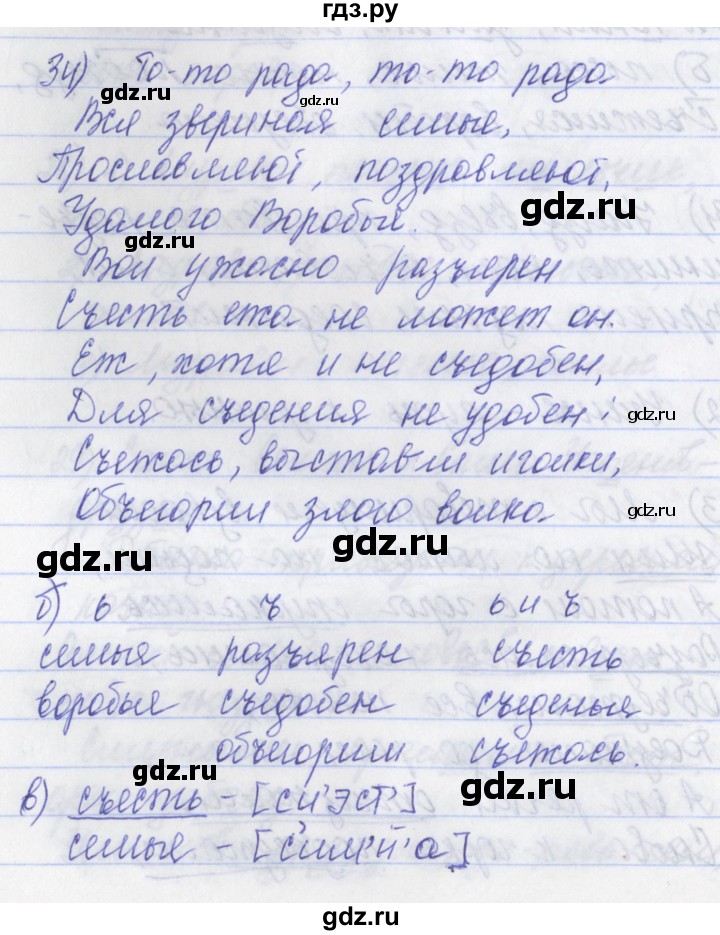 гдз.ру
34) То-то рада, то-то рада
gdz.ru gdz.ru
Вся звериная семья,
Прославляют, поздравляют,
gdz.ru
Удалого Воробья.
gdz.ru
Волк ужасно разъярен
Съесть ежа не может он.
gdz.ru
Еж, хотя и не съедобен,
Для съедения не удобен:
gdz.ru
Съежась, выставил иголки,
Объегорил злого волка
gdz.ru
gdz.ru gdz.ru
б) ь ъ ь и ъ
семья разъярен съесть
воробья съедобен съеденья
объегорил съежась.
gdz.ru gdz.ru
в) съесть - [сй'эст']
семья - [с'им'й'а]
gdz.ru